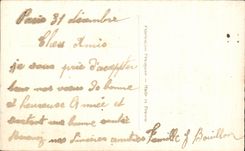 Paris 31 décembre
Chers Amis
je vous prie d'accepter
tous nos voeux de bonne
et heureuse Année et
surtout une bonne santé
Recevez nos sincères amitiés Famille J Bouillon